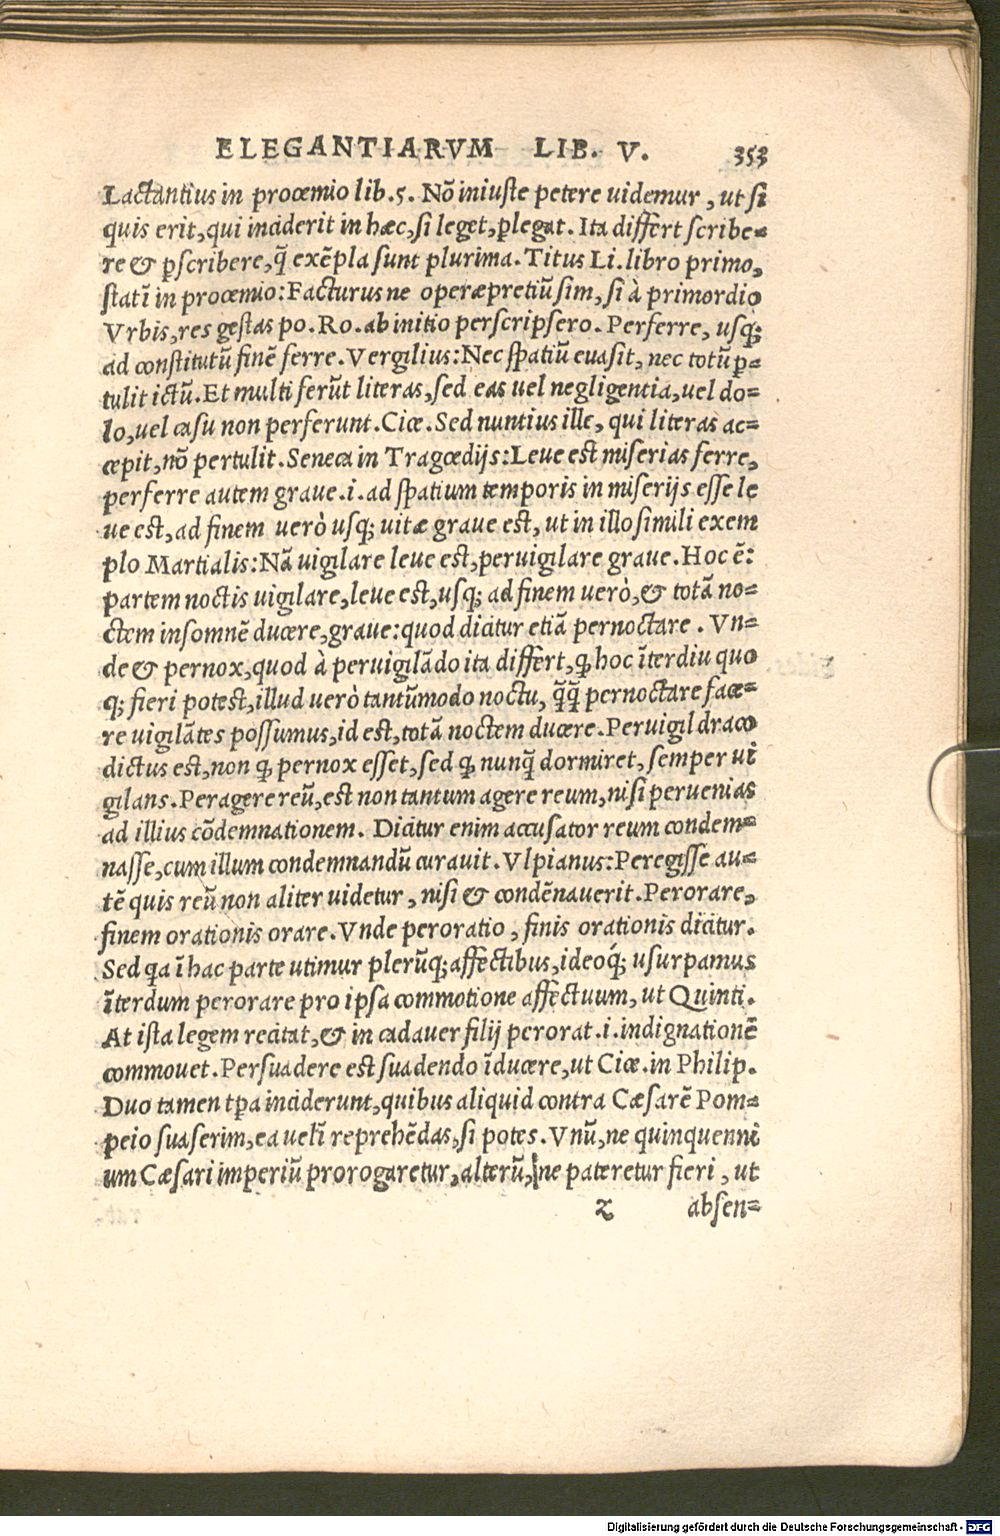 ELEGANTIARVM LIB. V. 353
Lactantius in procemio lib.5. Nō iniuste petere uidemur, ut si
quis erit, qui inciderit in hæc, si leget, ꝑlegat. Ita differt scribe-
re & ꝑscribere, q̄ exēpla sunt plurima. Titus Li. libro primo,
statī in procemio: Facturus ne operæpretiū sim, si à primordio
Vrbis, res gestas po. Ro. ab initio perscripsero. Perferre, usq;
ad constitutū finē ferre. Vergilius: Nec spatiū euasit, nec totū ꝑ-
tulit ictū. Et multi ferūt literas, sed eas uel negligentia, uel do-
lo, uel casu non perferunt. Cice. Sed nuntius ille, qui literas ac-
cepit, nō pertulit. Seneca in Tragœdijs: Leue est miserias ferre,
perferre autem graue. i. ad spatium temporis in miserijs esse le
ue est, ad finem uerò usq; uitæ graue est, ut in illo simili exem
plo Martialis: Nā uigilare leue est, peruigilare graue. Hoc ē:
partem noctis uigilare, leue est, usq; ad finem uerò, & totā no-
ctem insomnē ducere, graue: quod dicitur etiā pernoctare. Vn-
de & pernox, quod à peruigilādo ita differt, ꝙ hoc īterdiu quo
q; fieri potest, illud uerò tantūmodo noctu, q̄q̄ pernoctare face-
re uigilātes possumus, id est, totā noctem ducere. Peruigil draco
dictus est, non ꝙ pernox esset, sed ꝙ nunq̄ dormiret, semper ui
gilans. Peragere reū, est non tantum agere reum, nisi peruenias
ad illius cōdemnationem. Dicitur enim accusator reum condem-
nasse, cum illum condemnandū curauit. Vlpianus: Peregisse au-
tē quis reū non aliter uidetur, nisi & condēnauerit. Perorare,
finem orationis orare. Vnde peroratio, finis orationis dicitur.
Sed qa ī hac parte utimur plerūq; affectibus, ideoq́; usurpamus
īterdum perorare pro ipsa commotione affectuum, ut Quinti.
At ista legem recitat, & in cadauer filij perorat. i. indignationē
commouet. Persuadere est suadendo īducere, ut Cice. in Philip.
Duo tamen tꝑa inciderunt, quibus aliquid contra Cæsarē Pom-
peio suaserim, ea uelī reprehēdas, si potes. Vnū, ne quinquenni
um Cæsari imperiū prorogaretur, alterū, ne pateretur fieri, ut
z absen-
Digitalisierung gefördert durch die Deutsche Forschungsgemeinschaft - DFG